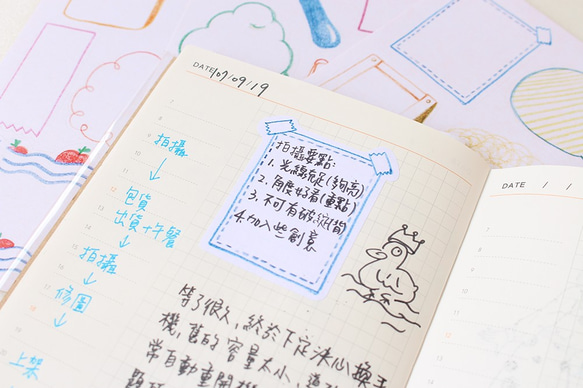 DATE 107/09/19
拍攝
↓
包貨
出貨+午餐
↓
拍攝
↓
修圖
↓
上架
拍攝要點:
1. 光線足(夠高)
2. 角度好看(重點)
3. 不可有破綻
4. 加入些創意
等了很久,終於下定決心換手
機,舊的容量太小,
常自動重開機
DATE / /